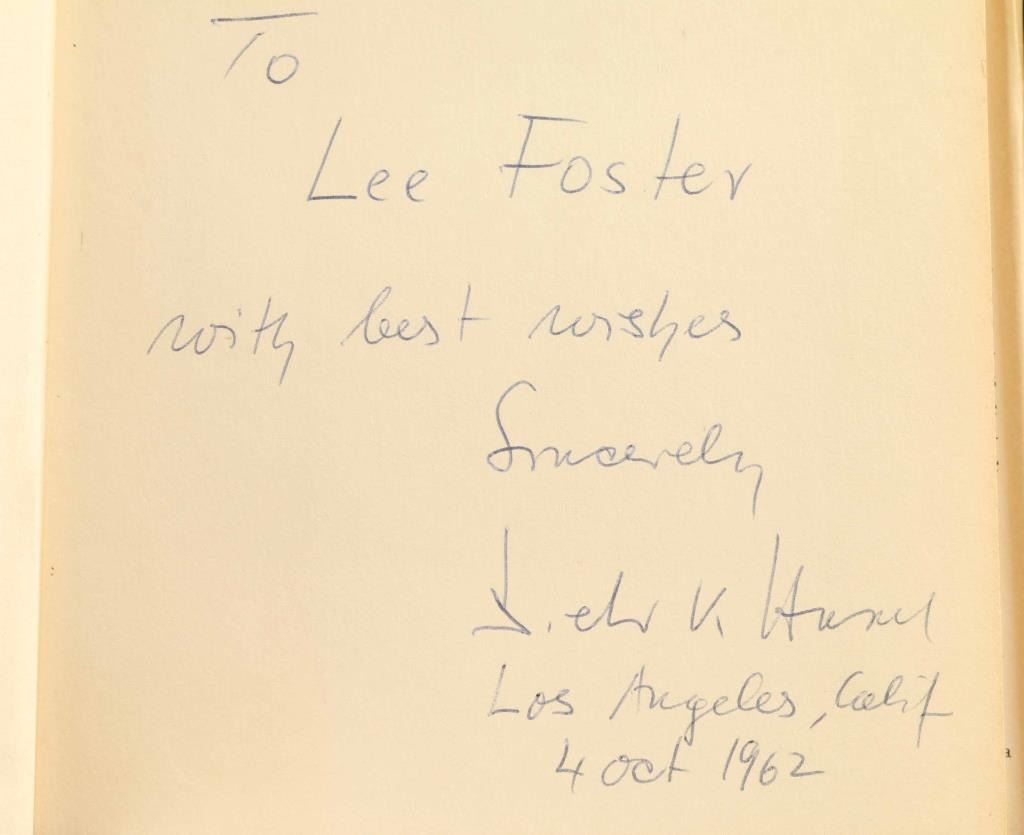 To
Lee Foster
with best wishes
Sincerely
Dieter K. Huzel
Los Angeles, Calif
4 Oct 1962